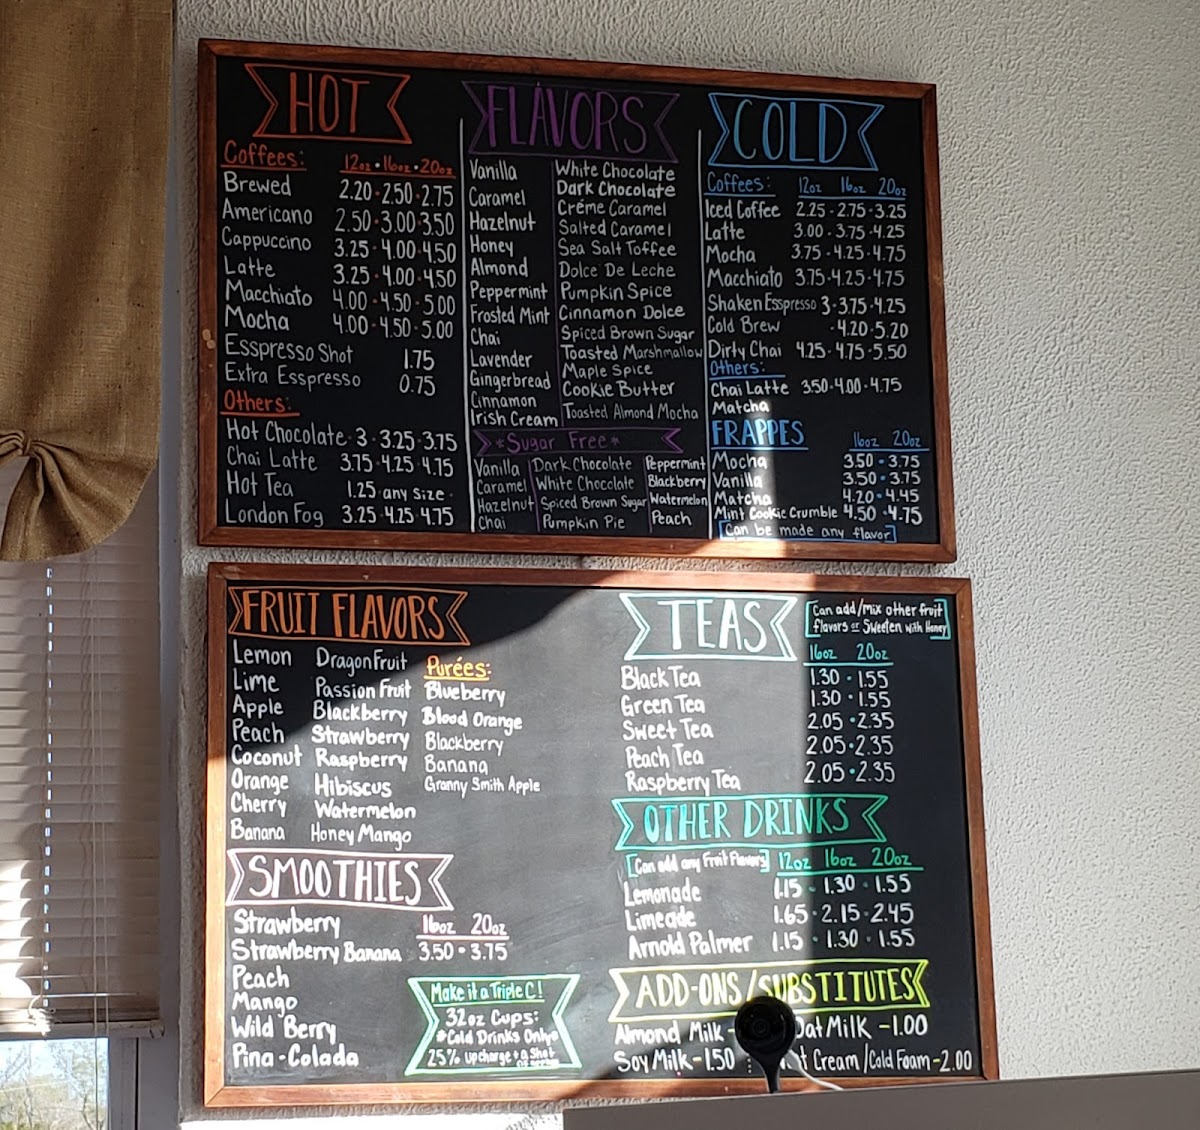 HOT
Coffees: 12oz • 16oz • 20oz
Brewed 2.20 • 2.50 • 2.75
Americano 2.50 • 3.00 • 3.50
Cappuccino 3.25 • 4.00 • 4.50
Latte 3.25 • 4.00 • 4.50
Macchiato 4.00 • 4.50 • 5.00
Mocha 4.00 • 4.50 • 5.00
Esspresso Shot 1.75
Extra Esspresso 0.75
Others:
Hot Chocolate • 3 • 3.25 • 3.75
Chai Latte 3.75 • 4.25 • 4.75
Hot Tea 1.25 • any size •
London Fog 3.25 • 4.25 4.75
FLAVORS
Vanilla
Caramel
Hazelnut
Honey
Almond
Peppermint
Frosted Mint
Chai
Lavender
Gingerbread
Cinnamon
Irish Cream
White Chocolate
Dark Chocolate
Créme Caramel
Salted Caramel
Sea Salt Toffee
Dolce De Leche
Pumpkin Spice
Cinnamon Dolce
Spiced Brown Sugar
Toasted Marshmallow
Maple Spice
Cookie Butter
Toasted Almond Mocha
*Sugar Free*
Vanilla
Caramel
Hazelnut
Chai
Dark Chocolate
White Chocolate
Spiced Brown Sugar
Pumpkin Pie
Peppermint
Blackberry
Watermelon
Peach
COLD
Coffees: 12oz 16oz 20oz
Iced Coffee 2.25 • 2.75 • 3.25
Latte 3.00 • 3.75 • 4.25
Mocha 3.75 • 4.25 • 4.75
Macchiato 3.75 • 4.25 • 4.75
Shaken Esspresso 3 • 3.75 • 4.25
Cold Brew • 4.20 • 5.20
Dirty Chai 4.25 • 4.75 • 5.50
Others:
Chai Latte 3.50 • 4.00 • 4.75
Matcha
FRAPPES 16oz 20oz
Mocha 3.50 • 3.75
Vanilla 3.50 • 3.75
Matcha 4.20 • 4.45
Mint Cookie Crumble 4.50 • 4.75
[Can be made any flavor]
FRUIT FLAVORS
Lemon
Lime
Apple
Peach
Coconut
Orange
Cherry
Banana
DragonFruit
Passion Fruit
Blackberry
Strawberry
Raspberry
Hibiscus
Watermelon
Honey Mango
Purées:
Blueberry
Blood Orange
Blackberry
Banana
Granny Smith Apple
SMOOTHIES
16oz 20oz
Strawberry
Strawberry Banana 3.50 • 3.75
Peach
Mango
Wild Berry
Pina-Colada
Make it a Triple C!
32oz Cups:
*Cold Drinks Only*
25% upcharge + a shot
TEAS
[Can add/mix other fruit
flavors or Sweeten with Honey]
16oz 20oz
Black Tea 1.30 • 1.55
Green Tea 1.30 • 1.55
Sweet Tea 2.05 • 2.35
Peach Tea 2.05 • 2.35
Raspberry Tea 2.05 • 2.35
OTHER DRINKS
[Can add any Fruit Flavors] 12oz 16oz 20oz
Lemonade 1.15 • 1.30 • 1.55
Limeade 1.65 • 2.15 • 2.45
Arnold Palmer 1.15 • 1.30 • 1.55
ADD-ONS/SUBSTITUTES
Almond Milk - Oat Milk - 1.00
Soy Milk - 1.50 Cream/Cold Foam - 2.00